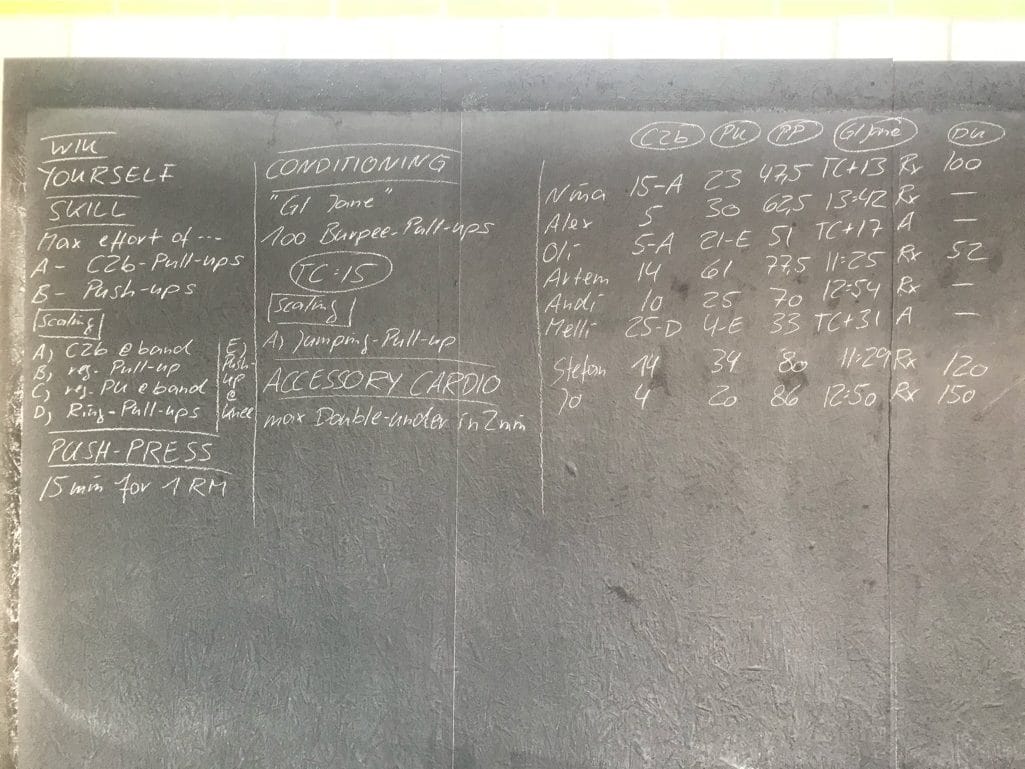 WIU
YOURSELF
SKILL
Max effort of ---
A - C2b-Pull-ups
B - Push-ups
Scaling
A) C2b @ band
B) reg. Pull-up
C) reg. PU @ band
D) Ring-Pull-ups
E)
Push-
up
@
knee
PUSH-PRESS
15 min for 1 RM
CONDITIONING
"GI Jane"
100 Burpee-Pull-ups
TC: 15
Scaling
A) Jumping-Pull-up
ACCESSORY CARDIO
max Double-under in 2 min
C2b PU PP GI Jane DU
Nina 15-A 23 47,5 TC+13 Rx 100
Alex 5 30 62,5 13:42 Rx —
Oli 5-A 21-E 51 TC+17 A —
Artem 14 61 77,5 11:25 Rx 52
Andi 10 25 70 12:54 Rx —
Melli 25-D 4-E 33 TC+31 A —
Stefan 14 34 80 11:29 Rx 120
Jo 4 20 86 12:50 Rx 150